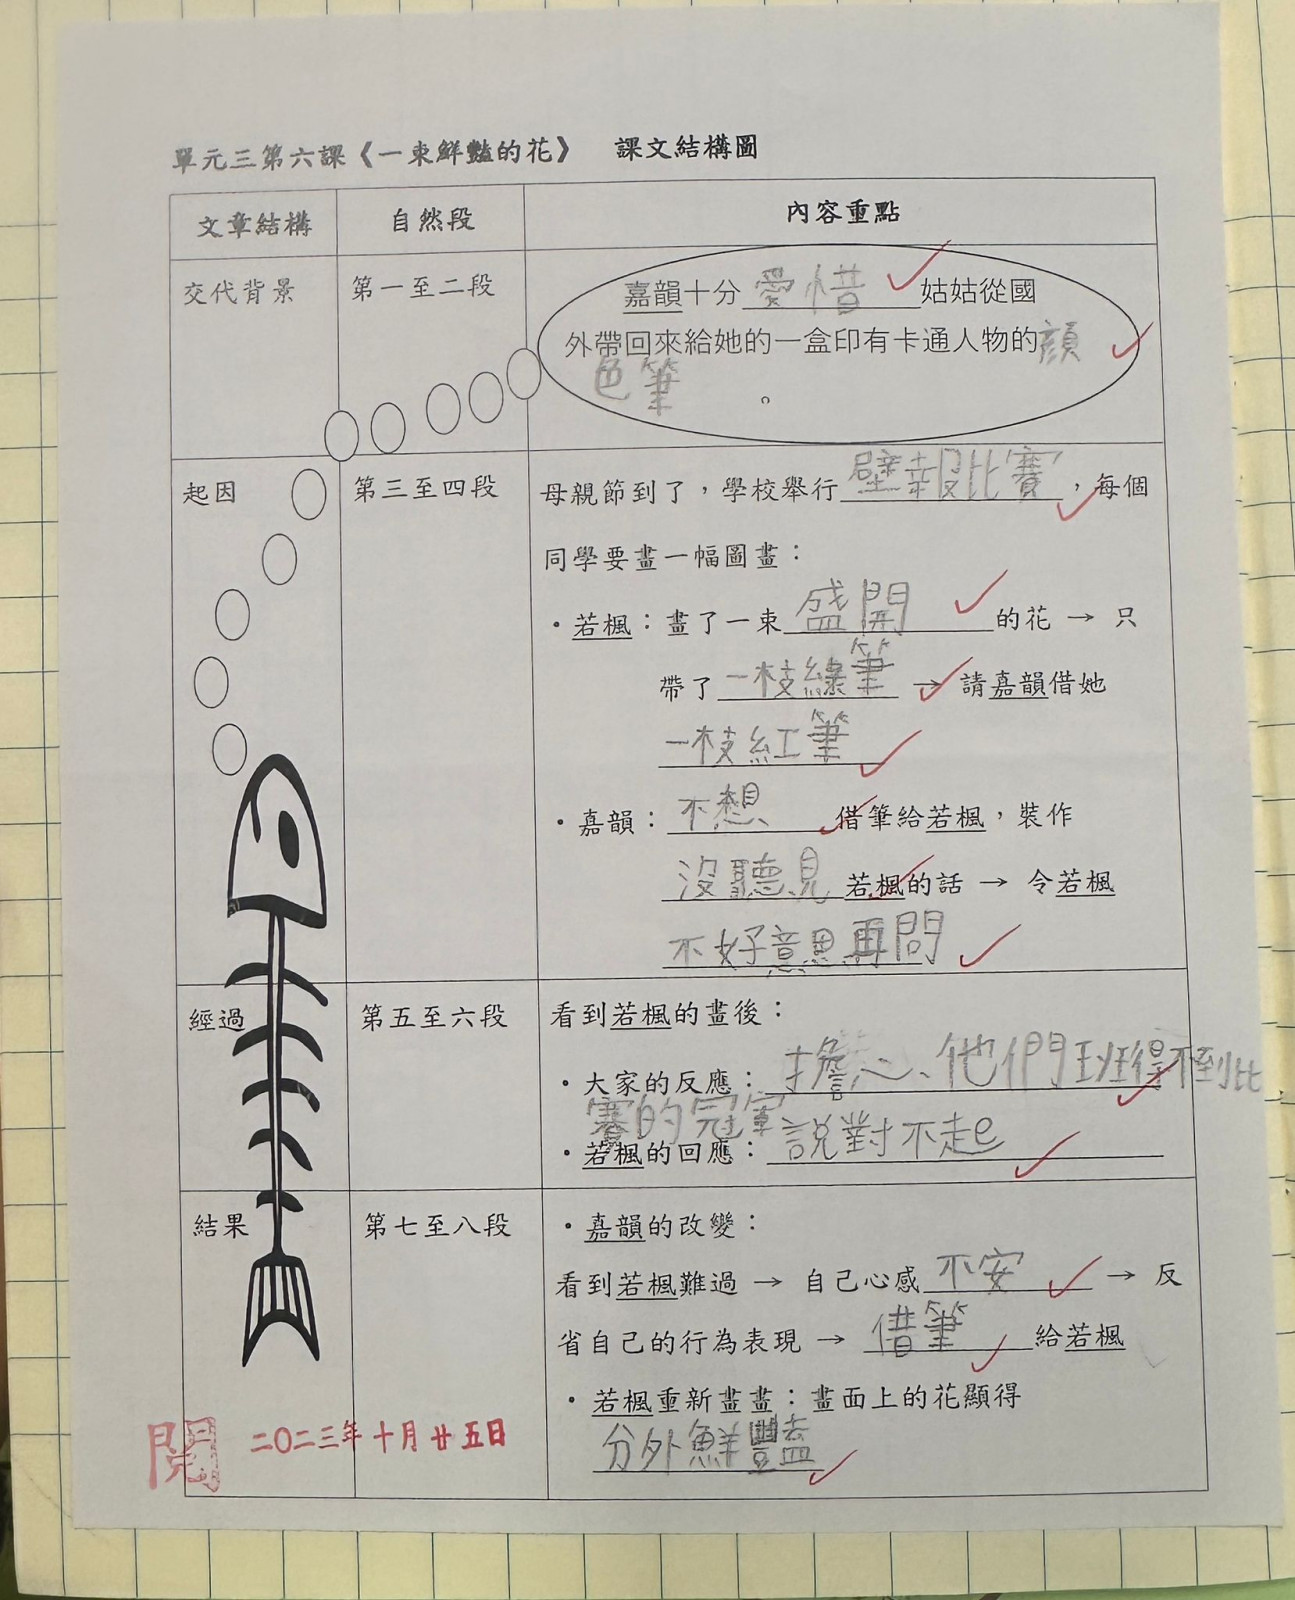 單元三第六課《一束鮮豔的花》 課文結構圖
文章結構 自然段 內容重點
交代背景 第一至二段 嘉韻十分愛惜姑姑從國
外帶回來給她的一盒印有卡通人物的顏
色筆。
起因 第三至四段 母親節到了，學校舉行壁報比賽，每個
同學要畫一幅圖畫：
・若楓：畫了一束盛開的花 → 只
帶了一枝綠筆 → 請嘉韻借她
一枝紅筆
・嘉韻：不想借筆給若楓，裝作
沒聽見若楓的話 → 令若楓
不好意思再問
經過 第五至六段 看到若楓的畫後：
・大家的反應：擔心、他們班得不到比
賽的冠軍
・若楓的回應：說對不起
結果 第七至八段 ・嘉韻的改變：
看到若楓難過 → 自己心感不安 → 反
省自己的行為表現 → 借筆給若楓
・若楓重新畫畫：畫面上的花顯得
分外鮮豔
閱 二〇二三年十月廿五日